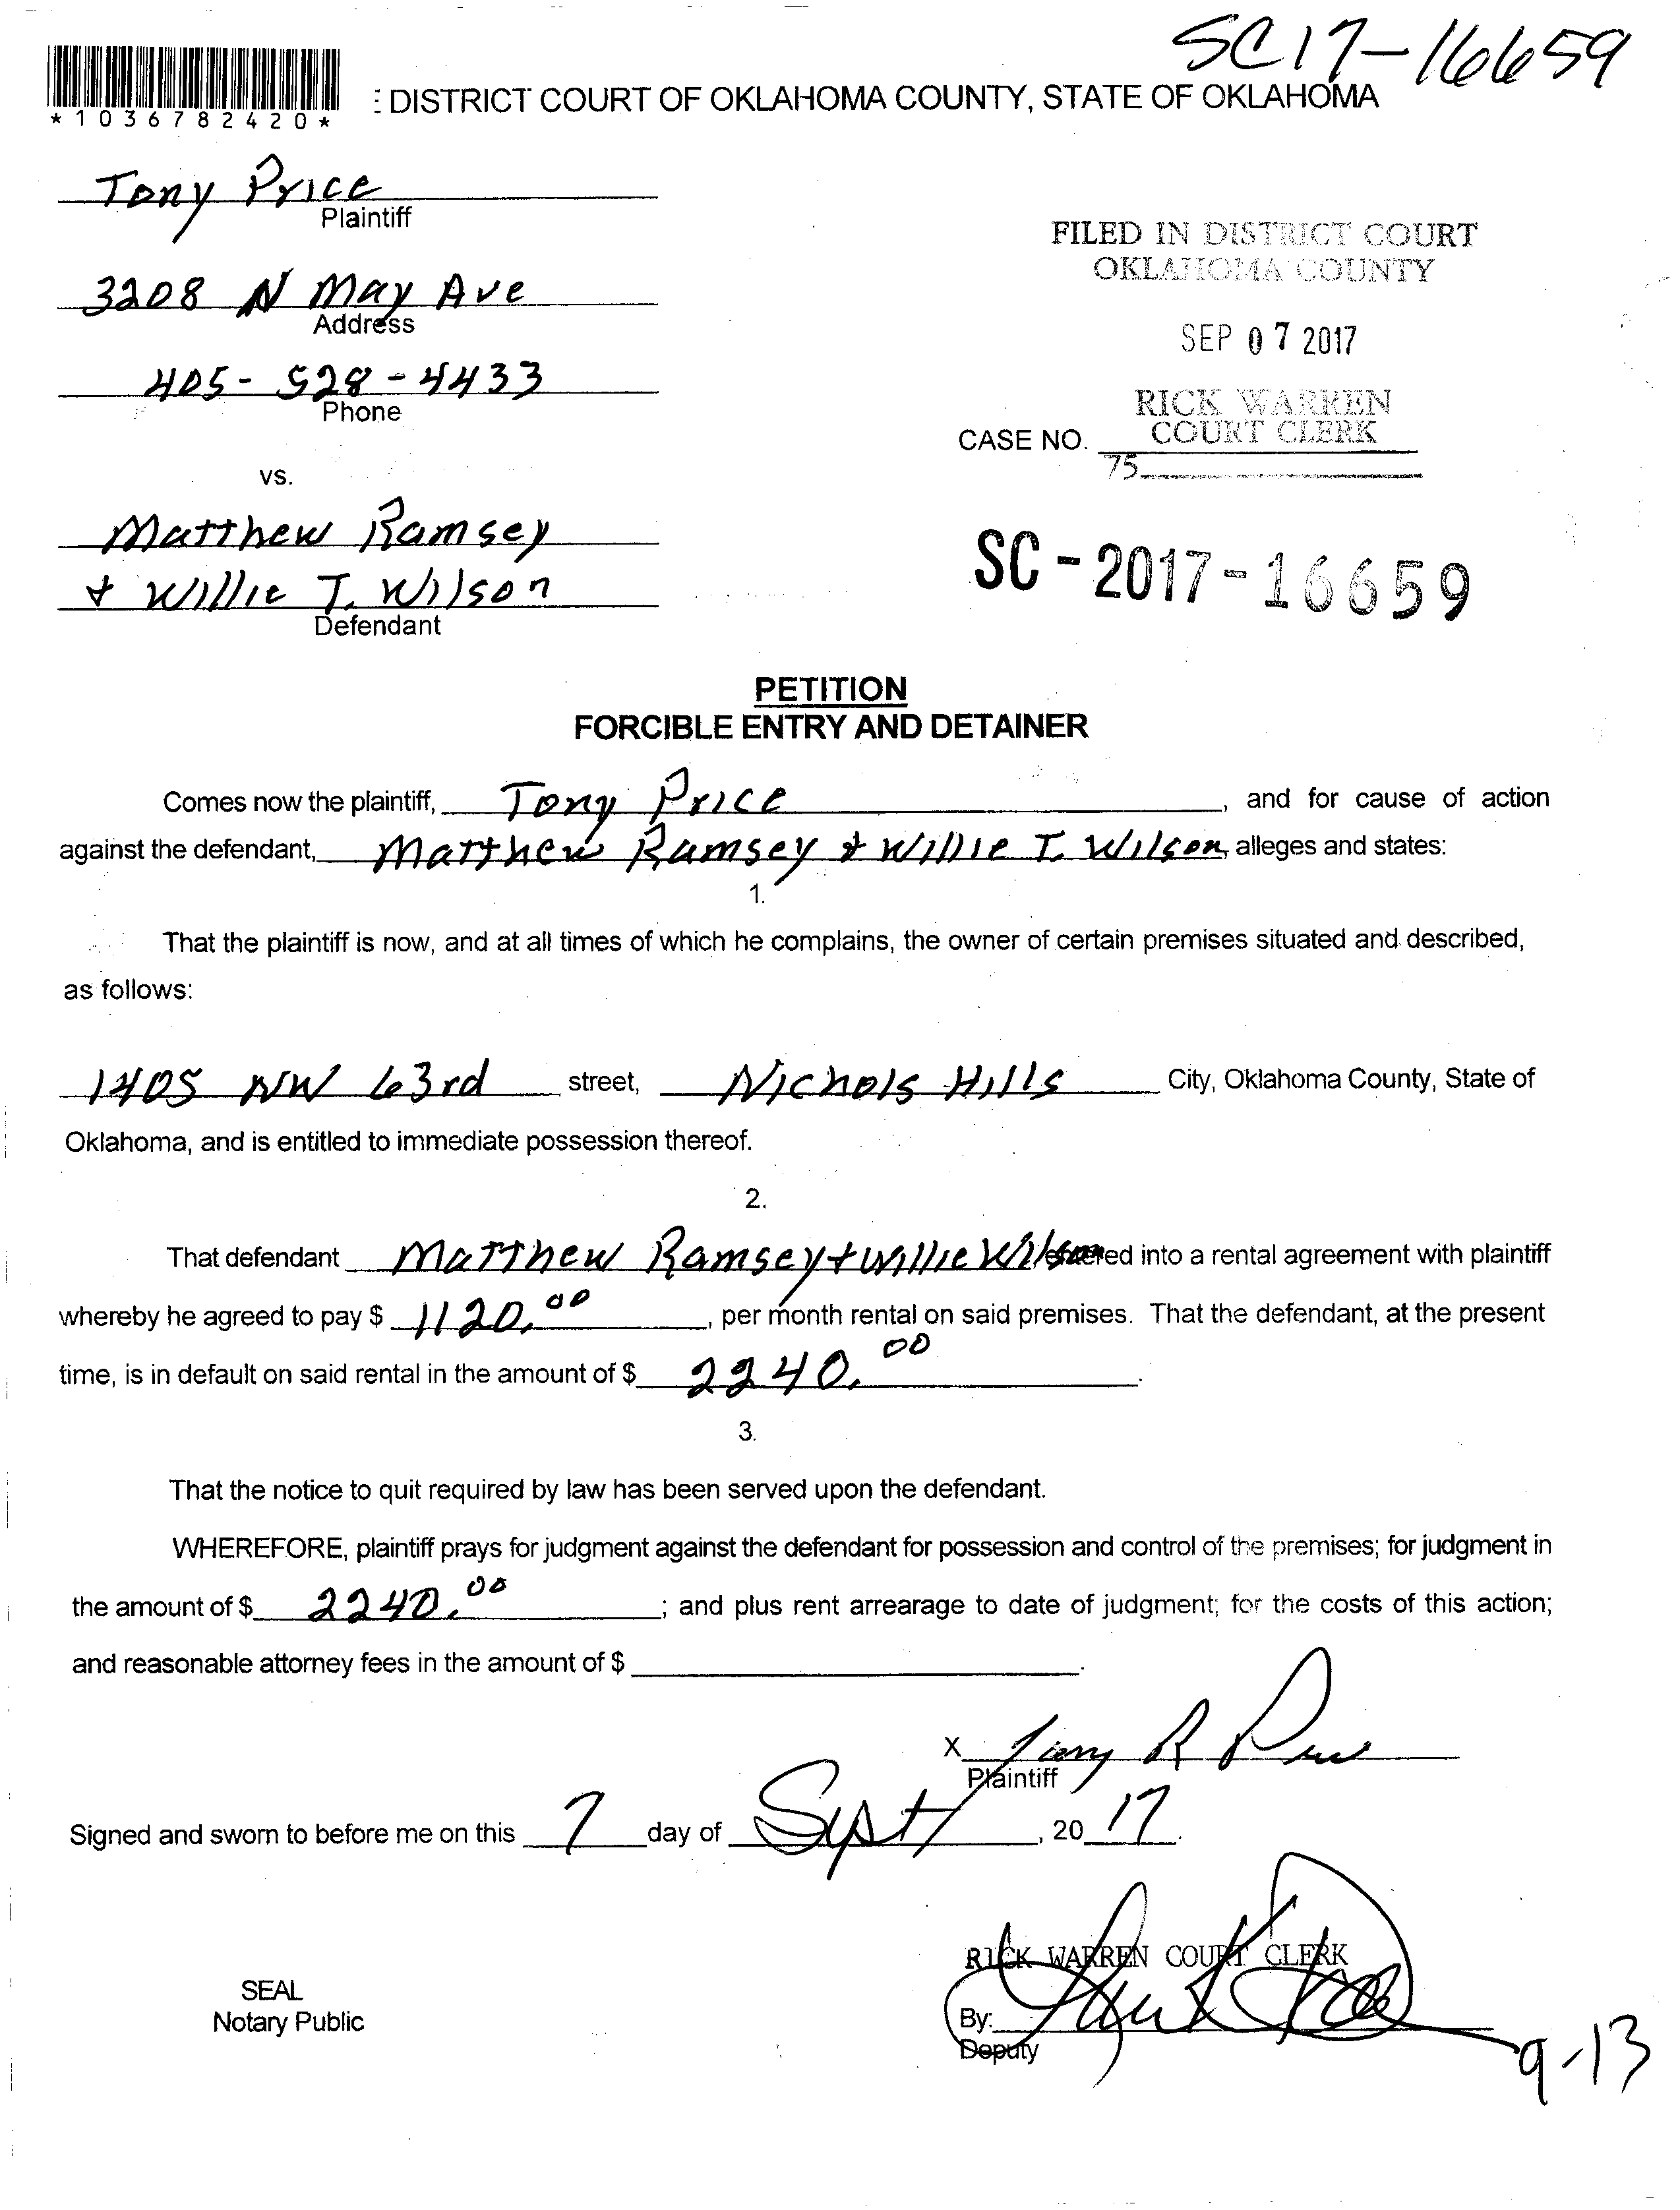 SC17-16659
*1036782420*
: DISTRICT COURT OF OKLAHOMA COUNTY, STATE OF OKLAHOMA
Tony Price
Plaintiff
3208 N May Ave
Address
405-528-4433
Phone
vs.
Matthew Ramsey
+ Willie T. Wilson
Defendant
FILED IN DISTRICT COURT
OKLAHOMA COUNTY
SEP 07 2017
RICK WARREN
COURT CLERK
CASE NO.
75
SC-2017-16659
PETITION
FORCIBLE ENTRY AND DETAINER
Comes now the plaintiff, Tony Price, and for cause of action
against the defendant, Matthew Ramsey + Willie T. Wilson, alleges and states:
1.
That the plaintiff is now, and at all times of which he complains, the owner of certain premises situated and described,
as follows:
1405 NW 63rd street, Nichols Hills City, Oklahoma County, State of
Oklahoma, and is entitled to immediate possession thereof.
2.
That defendant Matthew Ramsey + Willie Wilson entered into a rental agreement with plaintiff
whereby he agreed to pay $ 1120.00, per month rental on said premises. That the defendant, at the present
time, is in default on said rental in the amount of $ 2240.00.
3.
That the notice to quit required by law has been served upon the defendant.
WHEREFORE, plaintiff prays for judgment against the defendant for possession and control of the premises; for judgment in
the amount of $ 2240.00; and plus rent arrearage to date of judgment; for the costs of this action;
and reasonable attorney fees in the amount of $ .
X Tony R Price
Plaintiff
Signed and sworn to before me on this 7 day of Sept, 20 17.
RICK WARREN COURT CLERK
SEAL
Notary Public
By:
Deputy
9-13